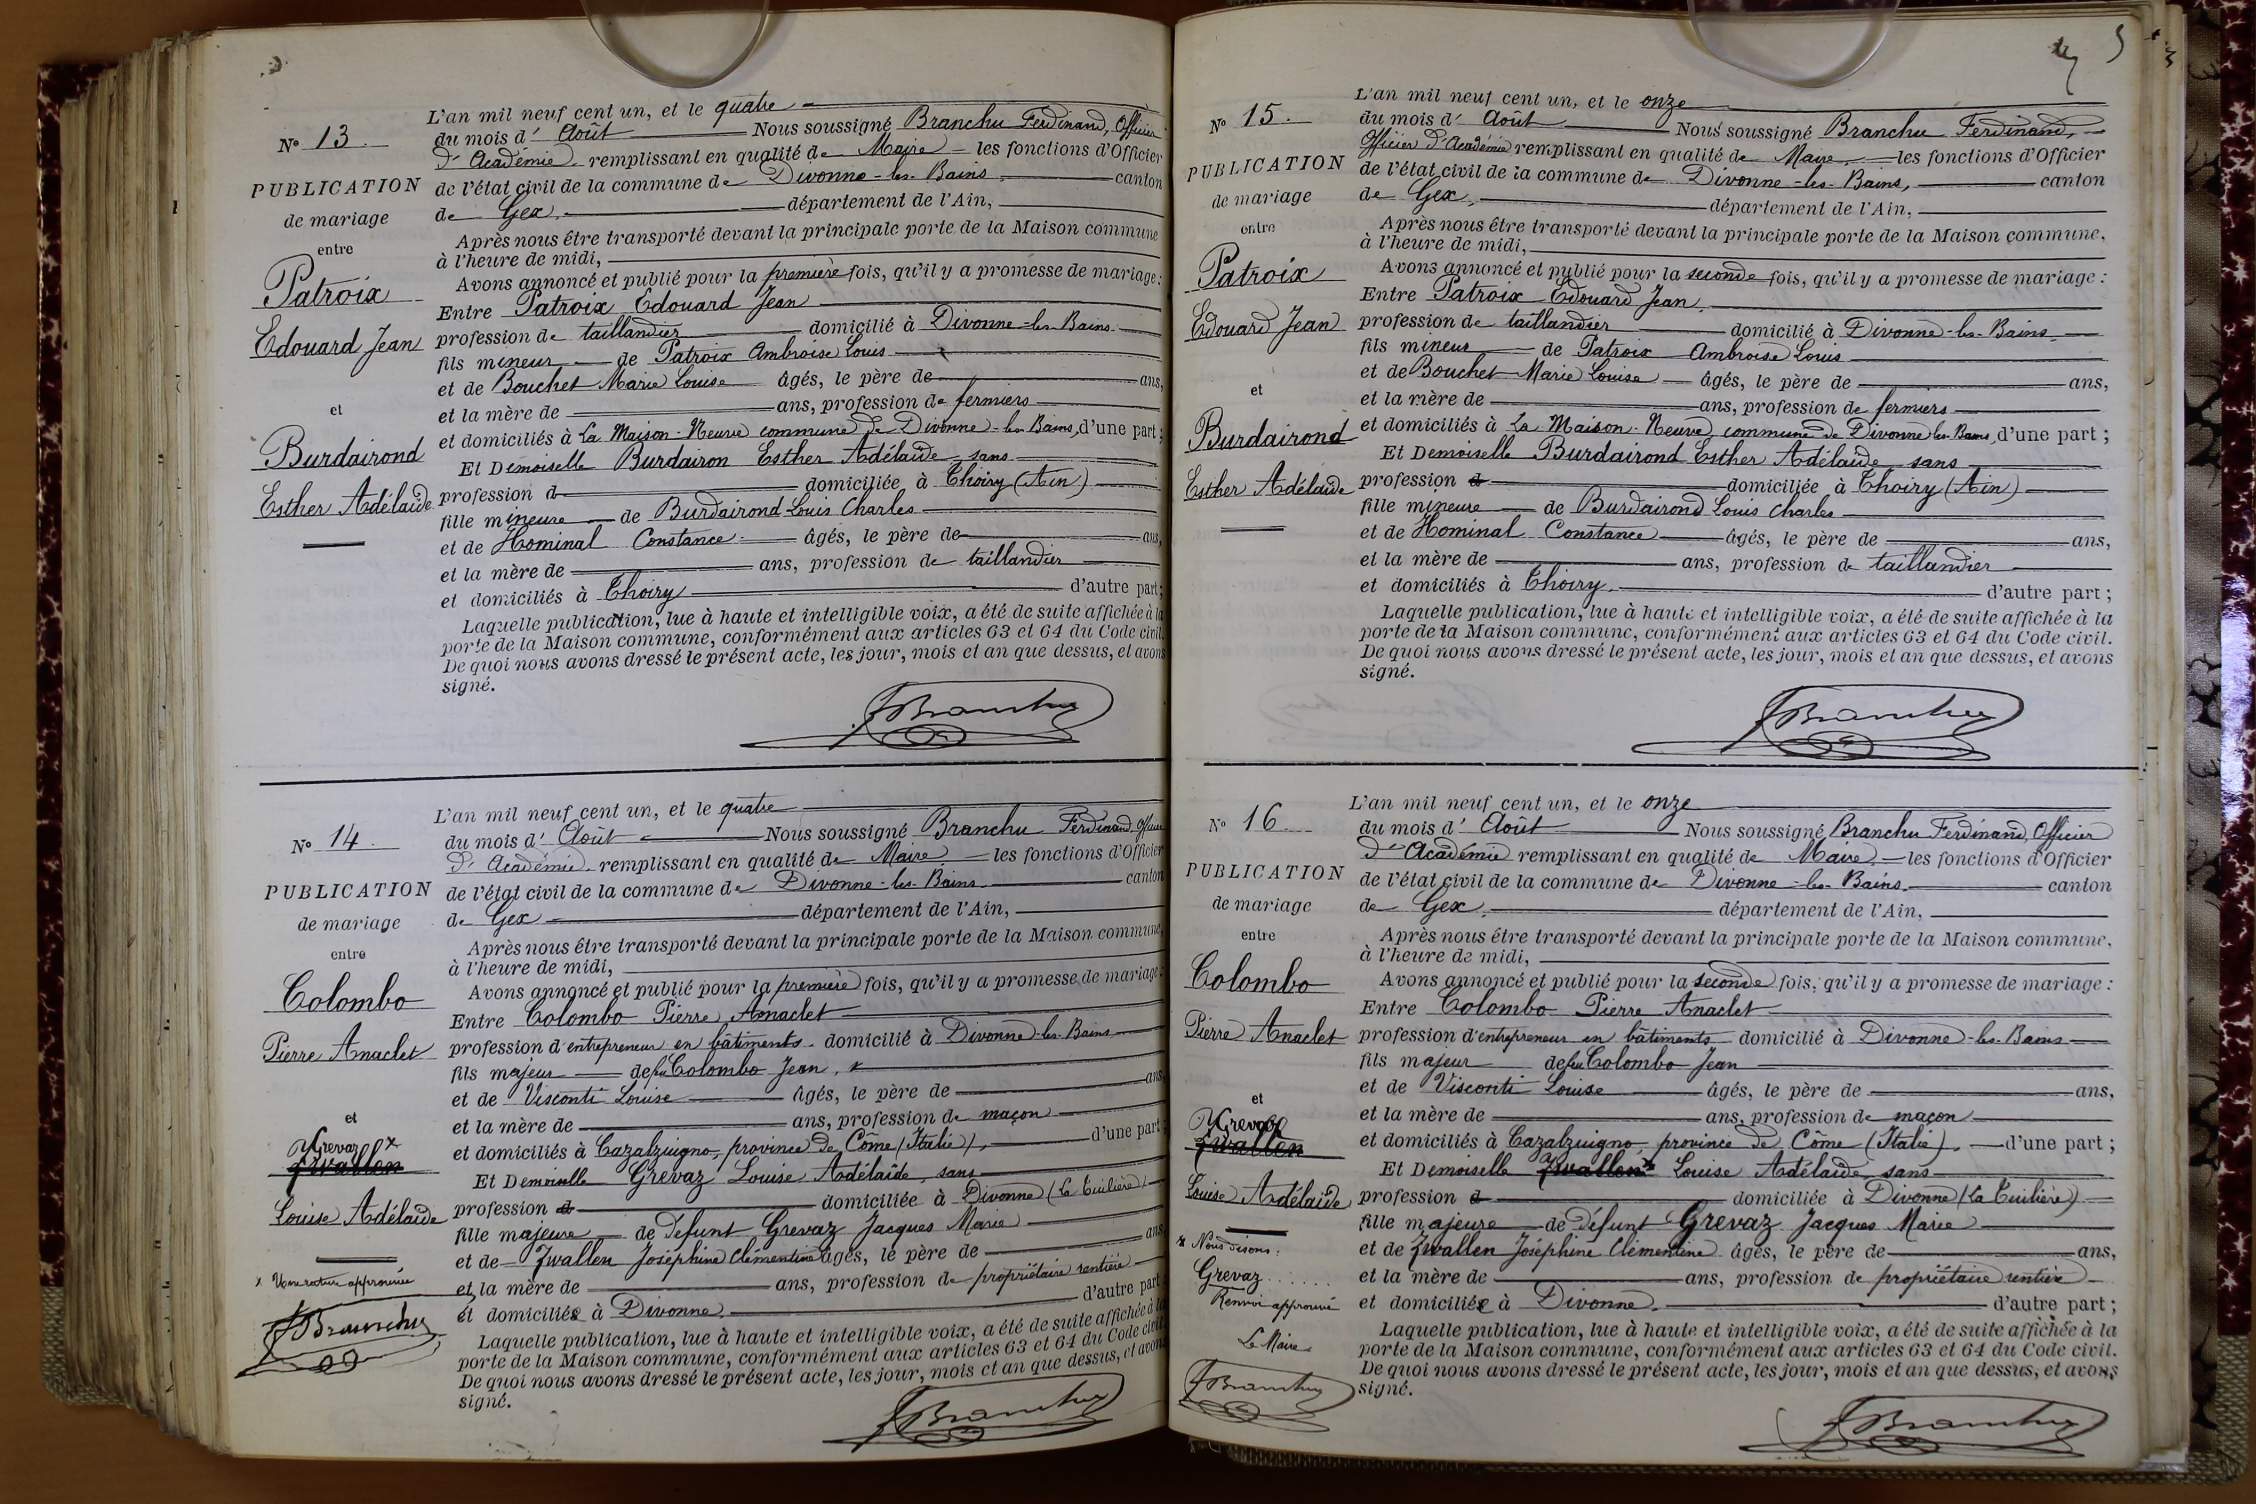 N° 13
PUBLICATION
de mariage
entre
Patroix
Edouard Jean
et
Burdairond
Esther Adélaïde
L'an mil neuf cent un, et le quatre
du mois d' Août Nous soussigné Branchu Ferdinand, Officier
d'Académie remplissant en qualité de Maire les fonctions d'Officier
de l'état civil de la commune de Divonne-les-Bains canton
de Gex, département de l'Ain,
Après nous être transporté devant la principale porte de la Maison commune
à l'heure de midi,
Avons annoncé et publié pour la première fois, qu'il y a promesse de mariage :
Entre Patroix Edouard Jean
profession de taillandier domicilié à Divonne-les-Bains
fils mineur de Patroix Ambroise Louis
et de Bouchet Marie Louise âgés, le père de ans,
et la mère de ans, profession de fermiers
et domiciliés à La Maison-Neuve commune de Divonne-les-Bains, d'une part ;
Et Demoiselle Burdairon Esther Adélaïde sans
profession d domiciliée à Thoiry (Ain)
fille mineure de Burdairond Louis Charles
et de Hominal Constance âgés, le père de ans,
et la mère de ans, profession de taillandier
et domiciliés à Thoiry d'autre part ;
Laquelle publication, lue à haute et intelligible voix, a été de suite affichée à la
porte de la Maison commune, conformément aux articles 63 et 64 du Code civil.
De quoi nous avons dressé le présent acte, les jour, mois et an que dessus, et avons
signé.
FBranchu
N° 14
PUBLICATION
de mariage
entre
Colombo
Pierre Anaclet
et
Grevaz x
Zwallen
Louise Adélaïde
x Une rature approuvée
FBranchu
L'an mil neuf cent un, et le quatre
du mois d' Août Nous soussigné Branchu Ferdinand, Officier
d'Académie remplissant en qualité de Maire les fonctions d'Officier
de l'état civil de la commune de Divonne-les-Bains canton
de Gex département de l'Ain,
Après nous être transporté devant la principale porte de la Maison commune,
à l'heure de midi,
Avons annoncé et publié pour la première fois, qu'il y a promesse de mariage :
Entre Colombo Pierre Anaclet
profession d'entrepreneur en bâtiments domicilié à Divonne-les-Bains
fils majeur de feu Colombo Jean, x
et de Visconti Louise âgés, le père de ans,
et la mère de ans, profession de maçon
et domiciliés à Cazalzuigno, province de Côme (Italie), d'une part ;
Et Demoiselle Grevaz Louise Adélaïde, sans
profession d domiciliée à Divonne (La Tuilière)
fille majeure de défunt Grevaz Jacques Marie
et de Zwallen Joséphine Clémentine âgés, le père de ans,
et la mère de ans, profession de propriétaire rentière
et domiciliée à Divonne. d'autre part ;
Laquelle publication, lue à haute et intelligible voix, a été de suite affichée à la
porte de la Maison commune, conformément aux articles 63 et 64 du Code civil.
De quoi nous avons dressé le présent acte, les jour, mois et an que dessus, et avons
signé.
FBranchu
5
N° 15
PUBLICATION
de mariage
entre
Patroix
Edouard Jean
et
Burdairond
Esther Adélaïde
L'an mil neuf cent un, et le onze
du mois d' Août Nous soussigné Branchu Ferdinand,
Officier d'Académie remplissant en qualité de Maire les fonctions d'Officier
de l'état civil de la commune de Divonne-les-Bains, canton
de Gex, département de l'Ain,
Après nous être transporté devant la principale porte de la Maison commune,
à l'heure de midi,
Avons annoncé et publié pour la seconde fois, qu'il y a promesse de mariage :
Entre Patroix Edouard Jean
profession de taillandier domicilié à Divonne-les-Bains
fils mineur de Patroix Ambroise Louis
et de Bouchet Marie Louise âgés, le père de ans,
et la mère de ans, profession de fermiers
et domiciliés à La Maison-Neuve commune de Divonne-les-Bains, d'une part ;
Et Demoiselle Burdairond Esther Adélaïde sans
profession d domiciliée à Thoiry (Ain)
fille mineure de Burdairond Louis Charles
et de Hominal Constance âgés, le père de ans,
et la mère de ans, profession de taillandier
et domiciliés à Thoiry d'autre part ;
Laquelle publication, lue à haute et intelligible voix, a été de suite affichée à la
porte de la Maison commune, conformément aux articles 63 et 64 du Code civil.
De quoi nous avons dressé le présent acte, les jour, mois et an que dessus, et avons
signé.
FBranchu
N° 16
PUBLICATION
de mariage
entre
Colombo
Pierre Anaclet
et
Grevaz
Zwallen
Louise Adélaïde
x Nous disons :
Grevaz
Renvoi approuvé
Le Maire
FBranchu
L'an mil neuf cent un, et le onze
du mois d' Août Nous soussigné Branchu Ferdinand, Officier
d'Académie remplissant en qualité de Maire, les fonctions d'Officier
de l'état civil de la commune de Divonne-les-Bains canton
de Gex, département de l'Ain,
Après nous être transporté devant la principale porte de la Maison commune,
à l'heure de midi,
Avons annoncé et publié pour la seconde fois, qu'il y a promesse de mariage :
Entre Colombo Pierre Anaclet
profession d'entrepreneur en bâtiments domicilié à Divonne-les-Bains
fils majeur de feu Colombo Jean
et de Visconti Louise âgés, le père de ans,
et la mère de ans, profession de maçon
et domiciliés à Cazalzuigno, province de Côme (Italie), d'une part ;
Et Demoiselle Zwallen x Louise Adélaïde sans
profession d domiciliée à Divonne (La Tuilière)
fille majeure de défunt Grevaz Jacques Marie
et de Zwallen Joséphine Clémentine âgés, le père de ans,
et la mère de ans, profession de propriétaire rentière
et domiciliée à Divonne. d'autre part ;
Laquelle publication, lue à haute et intelligible voix, a été de suite affichée à la
porte de la Maison commune, conformément aux articles 63 et 64 du Code civil.
De quoi nous avons dressé le présent acte, les jour, mois et an que dessus, et avons
signé.
FBranchu